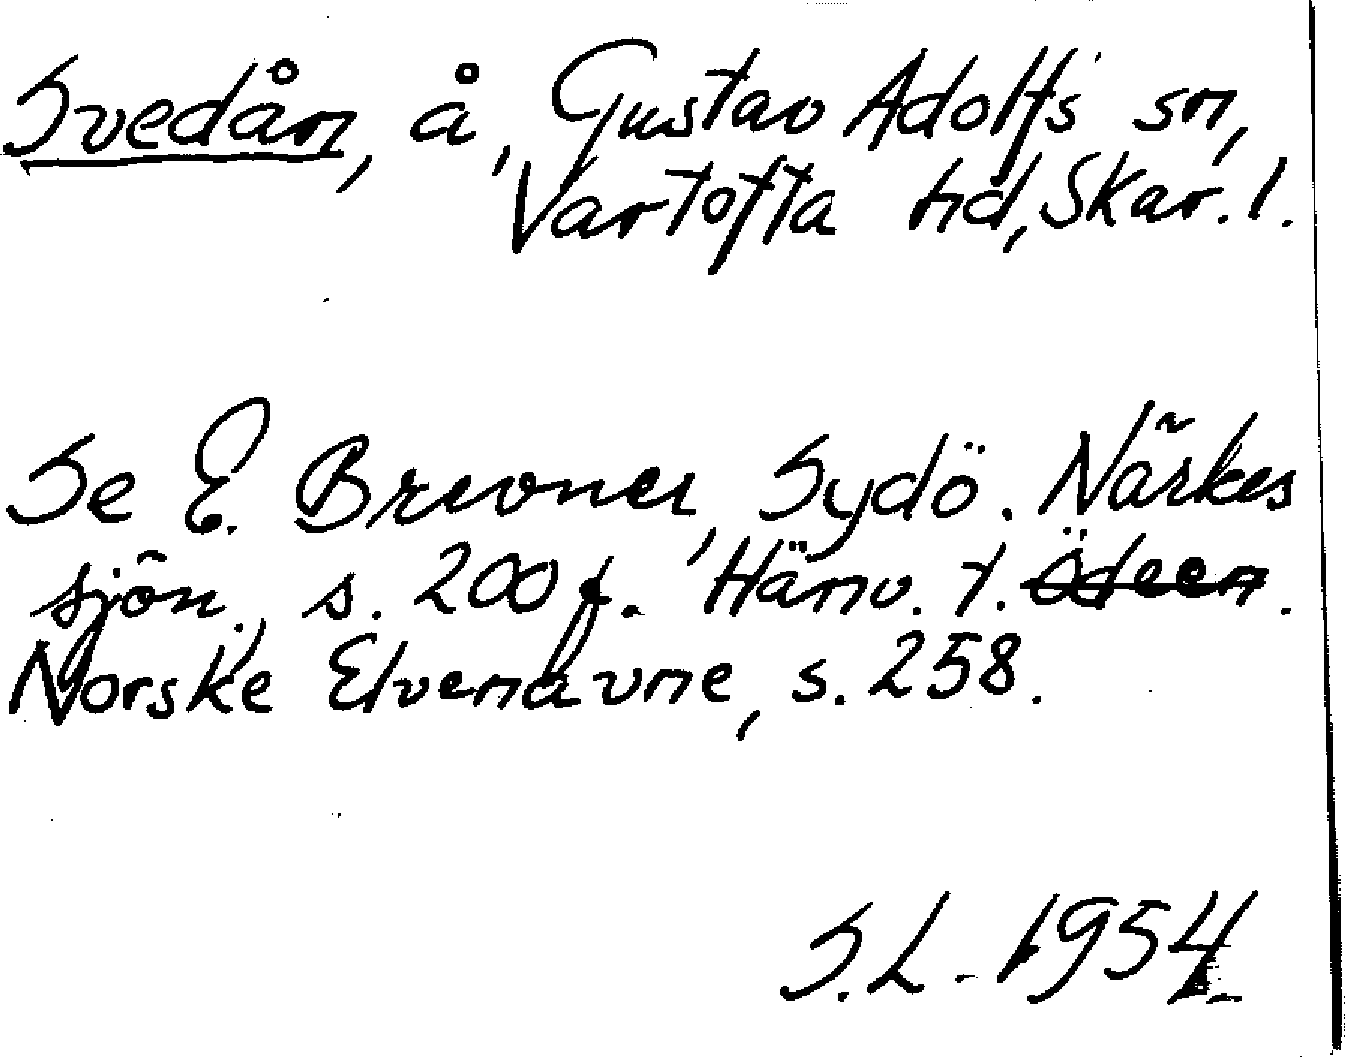 Svedån, å, Gustav Adolfs sn,
Vartofta hd, Skar. l.
Se E. Brevner, Sydö. Närkes
sjön., s. 200 f. Hänv. t.
Norske Elvenavne, s. 258.
S.L. 1954